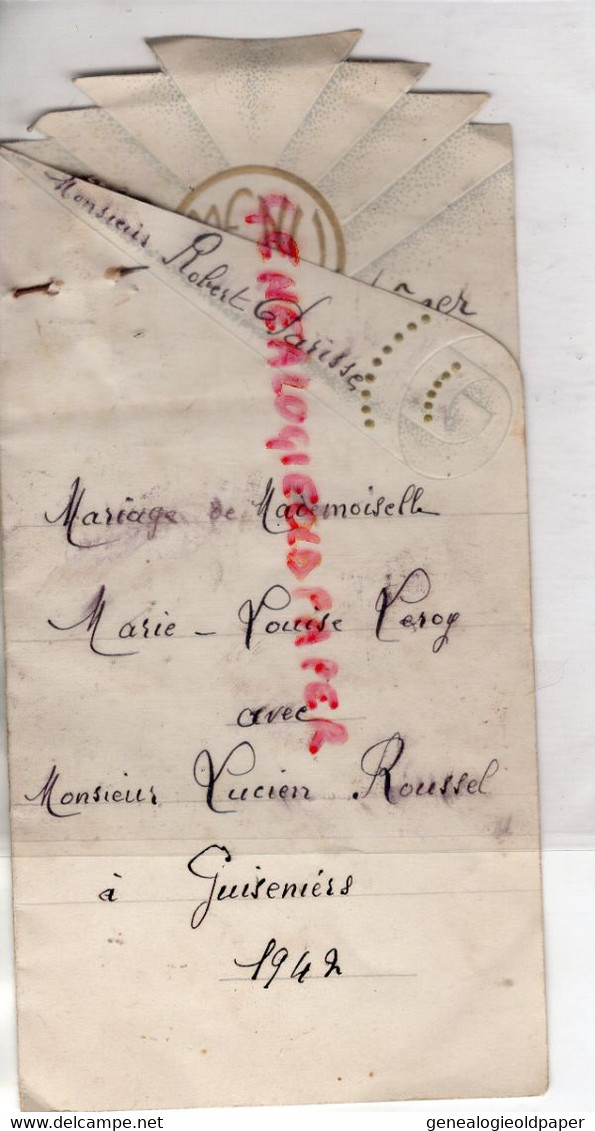 MENU
Monsieur Robert Parisse
Mariage de Mademoiselle
Marie - Louise Leroy
avec
Monsieur Lucien Roussel
à Guiseniérs
1942
GENEALOGIEOLDPAPER
delcampe.net
genealogieoldpaper